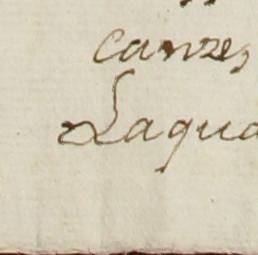 canze,
Laqua